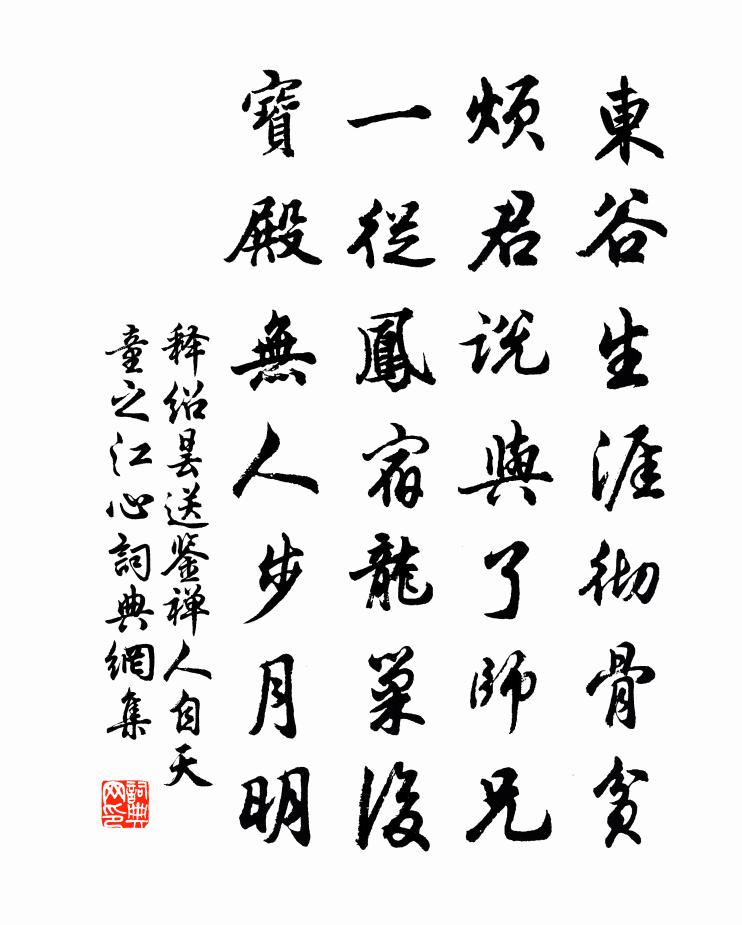 東谷生涯彻骨貧
煩君説與了師兄
一從鳳宿龍巢後
寶殿無人步月明
释绍昙送鉴禅人自天
童之江心詞典網集
詞典网印